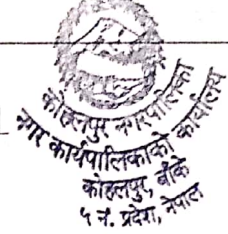 कोहलपुर नगरपालिका
नगर कार्यपालिकाको कार्यालय
कोहलपुर, बाँके
५ नं. प्रदेश, नेपाल